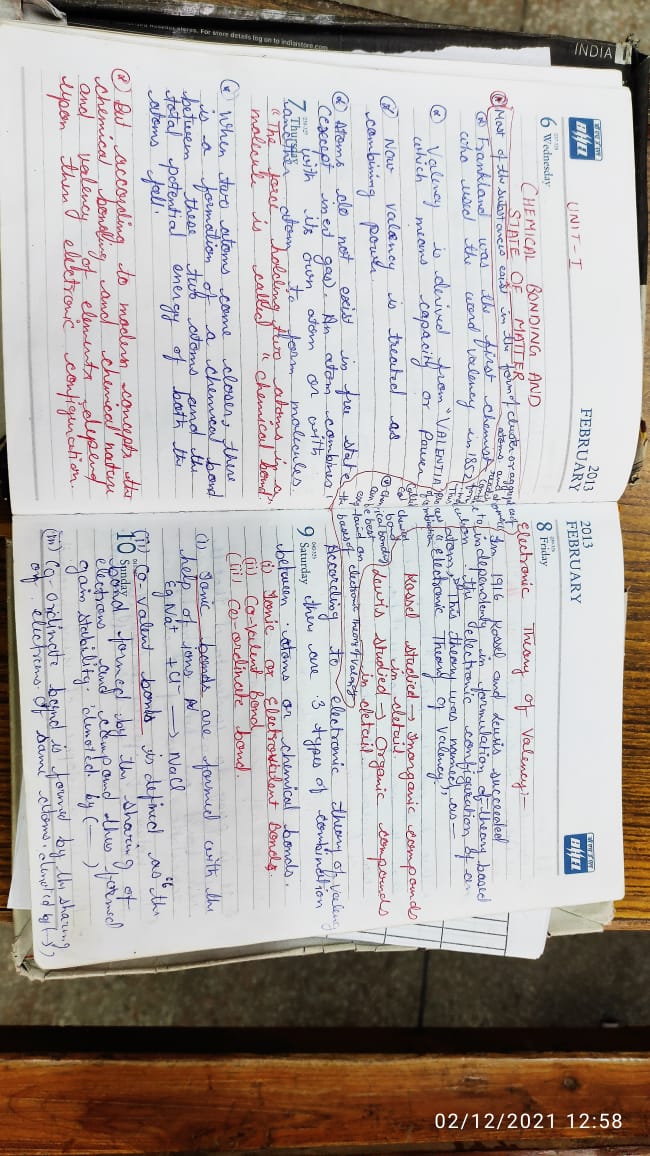 INDIA
stores. For store details log on to indiastore.com
2013
FEBRUARY
BHEL
6 Wednesday
UNIT-I
CHEMICAL BONDING AND
STATE OF MATTER
Most of the substances exist in the form of cluster or aggregates of
atoms and
Frankland was the first chemist
who used the word valency in 1852
Valency is derived from "VALENTIA"
which means capacity or Power
Now valency is treated as
combining power.
Atoms do not exist in free state
(except inert gas). An atom combines
7 Thursday
with its own atom or with
another atom to form molecules
"The force holding two atoms in a
molecule is called "chemical bond.
When two atoms come closer, there
is a formation of a chemical bond
between these two atoms and the
total potential energy of both the
atoms fall.
But according to modern concepts the
chemical bonding and chemical nature
and valency of elements depend
upon their electronic configuration.
2013
FEBRUARY
BHEL
8 Friday
Electronic Theory of Valency:-
In 1916 Kossel and Lewis succeeded
independently in formulation of theory based
on the electronic configuration of an
atom. This theory was named as -
"electronic Theory of valency";
Kossel studied → Inorganic compounds
in detail.
Lewis studied → Organic compounds
in detail.
the bases of electronic theory of valency
According to electronic theory of valency
9 Saturday
there are 3 types of combination
between atoms or chemical bonds.
(i) Ionic or Electrovalent Bonds.
(ii) Co-valent Bond
(iii) Co-ordinate bond
(i) Ionic bonds are formed with the
help of ions
Eg Na+ + Cl- → NaCl
10 Sunday
(ii) Co-valent bonds is defined as the
bond formed by the sharing of
electrons and compound thus formed
gain stability. denoted by (—)
(iii) Co-ordinate bond is formed by the sharing
of electrons of same atoms. denoted by (→)
02/12/2021 12:58